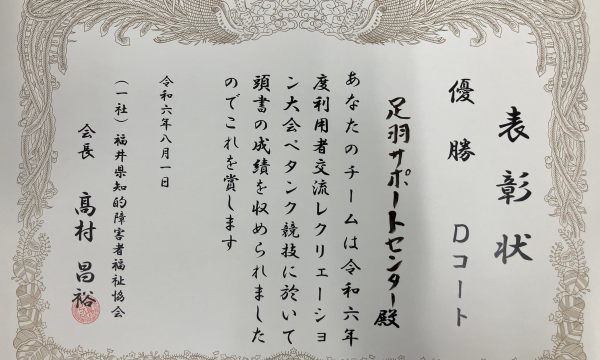 表彰状
優勝 Dコート
足羽サポートセンター殿
あなたのチームは令和六年
度利用者交流レクリエーショ
ン大会ペタンク競技に於いて
頭書の成績を収められました
のでこれを賞します
令和六年八月一日
(一社)福井県知的障害者福祉協会
会長 髙村昌裕